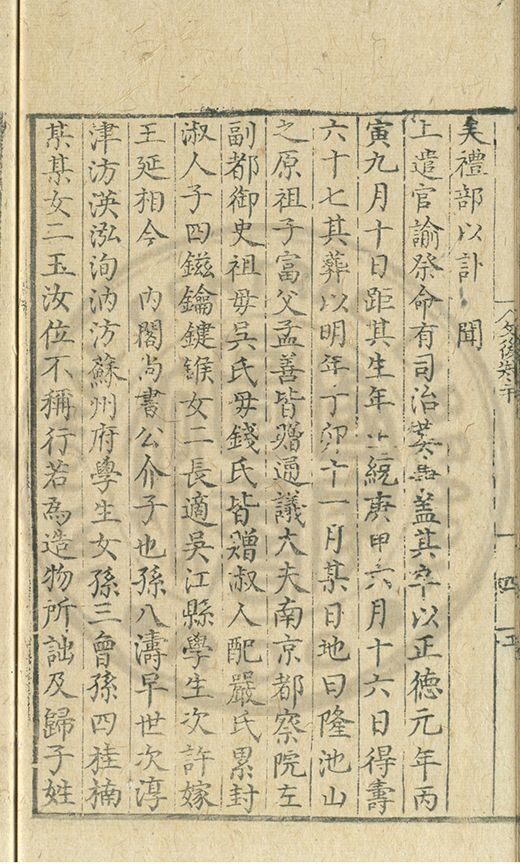 矣禮部以訃 聞
上遣官諭祭命有司治葬典盖其卒以正德元年丙
寅九月十日距其生年正統庚申六月十六日得壽
六十七其葬以明年丁卯十一月某日地曰隆池山
之原祖子富父孟善皆贈通議大夫南京都察院左
副都御史祖母吳氏母錢氏皆贈淑人配嚴氏累封
淑人子四鎡鑰鍵錐女二長適吳江縣學生次許嫁
王延相今 內閣尚書公介子也孫八濤早世次淳
津汸渶泓洵汭汸蘇州府學生女孫三曾孫四桂楠
某某女二玉汝位不稱行若為造物所詘及歸子姓